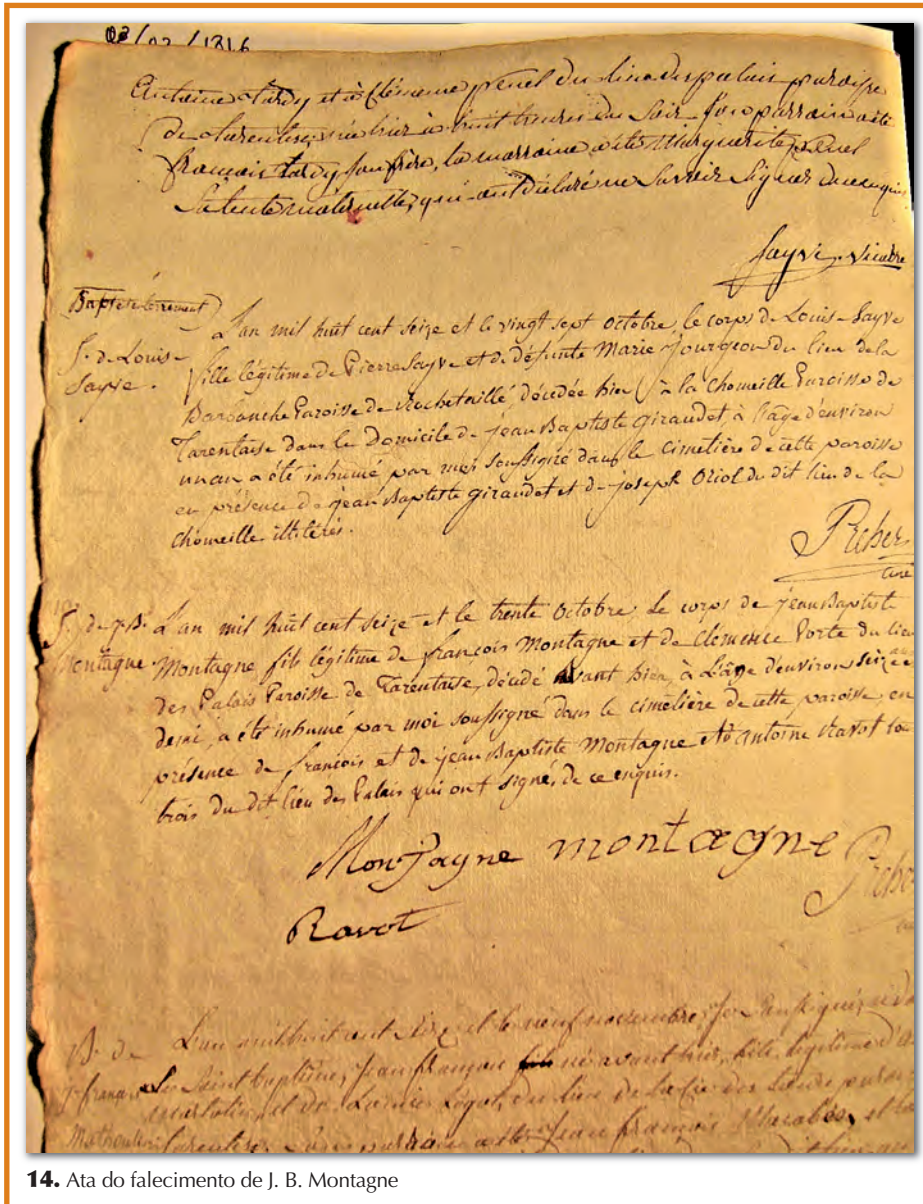 02/02/1816
Antoine tardy et à Clémence penel du lieu des palais paroisse
de tarentaise, né hier à huit heures du Soir. Son parrain a été
françois tardy Son frère, la marraine a été Marguerite penel
Sa tente maternelle, qui ont déclaré ne Savoir Signer de ce enquis
Sayve vicaire
S. de Louis
Sayve.
L'an mil huit cent Seize et le vingt sept octobre, le corps de Louis Sayve
fille légitime de Pierre Sayve et de défunte Marie Jourgeon du lieu de la
Barbanche Paroisse de Rochetaillé, décédée hier à la Chomeille Paroisse de
Tarentaise dans le Domicile de jean Baptiste Giraudet, à l'age d'environ
un an a été inhumé par moi Soussigné dans le cimetière de cette paroisse
en présence de jean Baptiste Giraudet et de joseph Oriol du dit lieu de la
Chomeille illitérés.
Preher
curé
S. de j. B.
Montagne
L'an mil huit cent seize et le trente Octobre, le corps de jean Baptiste
Montagne fils légitime de françois Montagne et de clemence Porte du lieu
des Palais Paroisse de Tarentaise, décédé avant hier, à L'âge d'environ seize ans
demi, a été inhumé par moi soussigné dans le cimetière de cette paroisse, en
présence de francois et de jean Baptiste Montagne et d'antoine Ravot to
trois du dit lieu des Palais qui ont signé, de ce enquis.
Montagne montagne
Preher
Ravot
B. de
j. françois
L'an mil huit cent Seize et le neuf novembre, je Soussigné,
Le Saint baptême, Jean françois né avant hier, fils légitime
et de du lieu de
jean françois et
14. Ata do falecimento de J. B. Montagne